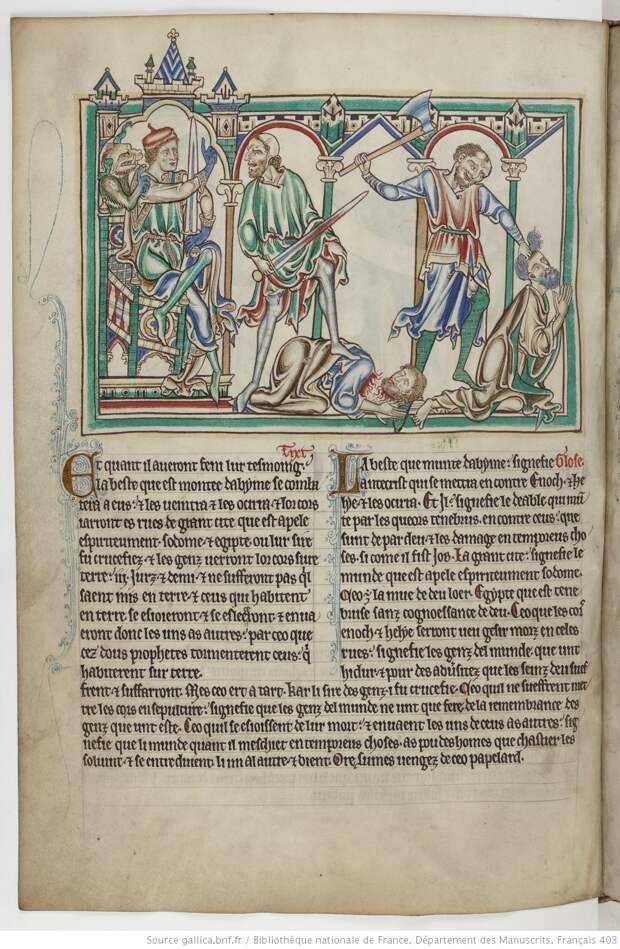 Tixt
Et quant il aueront feni lur tesmonig:
la beste que est montee dabyme se comba
tera a eus: & les ueintra & les ocira & lor cors
iarront es rues de grant cite que est apele
espiritument sodome & egipte ou lur sire
fu crucefiez & les genz uerront lor cors sure
terre: iij. iurz & demi & ne suffrront pas q̄
saent mis en terre & ceus qui habitent
en terre se esioieront & se & enua
eront donc les uns as autres: par ceo que
cez dous prophetes tormenterent ceus: q̄
habiterent sur terre.
La beste que munte dabyme: signefie Glose
antecrist qui se mettra en contre Enoch & he
lye & les ocira. Et il signefie le deable qui mu
te par les queors tenebrus en contre ceus: que
sunt de par deu & les damage en temporeus cho
ses: si come il fist Job. La grant cite: signefie le
munde que est apele espiritument sodome.
Ceo ꝫ la mue de deu loer. Egypte que est tene
bruse sanz cognoessance de deu. Ceo que les cors
enoch & helye serront ueu gesir morz en celes
rues: signefie les genz del munde que unt
hidur & por des que les seinz deu suef
frent & suffarront. Mes ceo ert a tart. kar li sire des genz i fu crucefie. Ceo quil ne sueffrent met
tre les cors en sepulture: signefie que les genz del munde ne unt que fere de la remembrance des
genz que unt este. Ceo quil se esioissent de lur mort: & enuaent les uns de ceus as autres: sig
nefie que li munde quant il meschiet en temporeus choses. as poudes homes que chastier les
solunt & se entreduient li un al autre & dient. Ore sumes uengez de ceo papelard.
Source gallica.bnf.fr / Bibliothèque nationale de France. Département des Manuscrits. Français 403